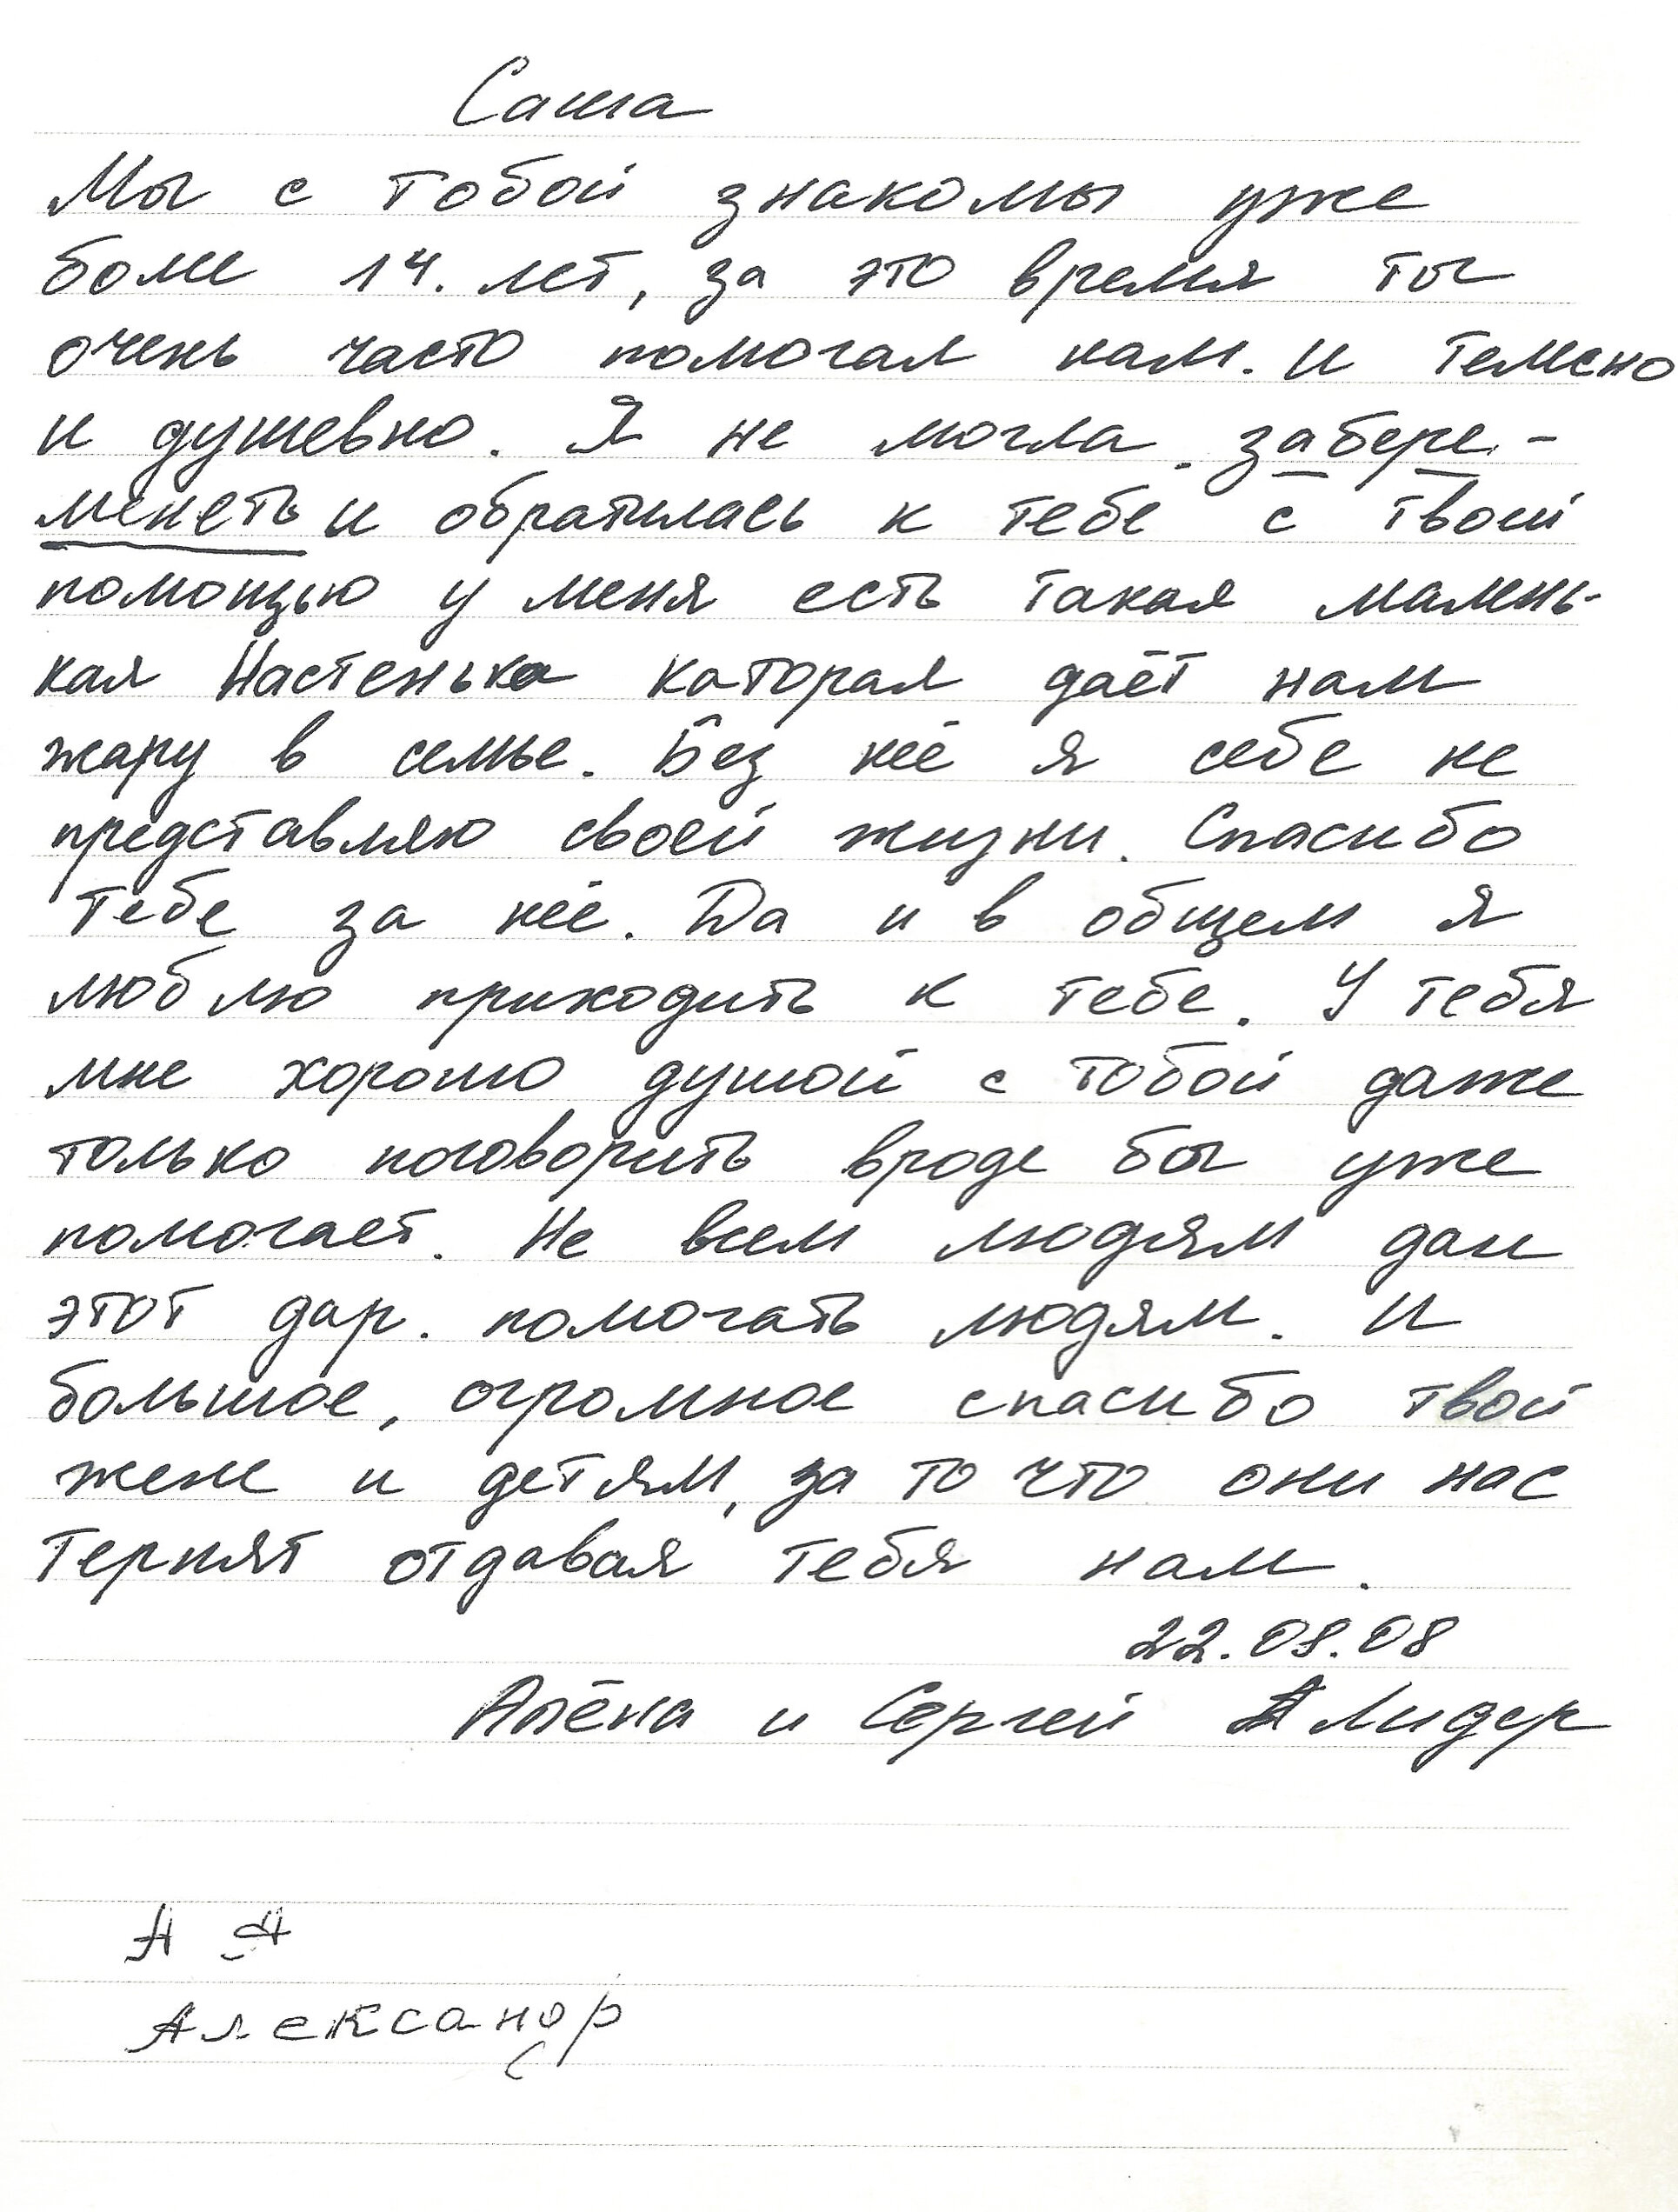 Саша
Мы с тобой знакомы уже
боле 14. лет, за это время ты
очень часто помогал нам. и телесно
и душевно. Я не могла забере-
менеть и обратилась к тебе с твоей
помощью у меня есть такая малень-
кая Настенька каторая даёт нам
жару в семье. Без неё я себе не
представляю своей жизни. Спасибо
тебе за неё. Да и в общем я
люблю приходить к тебе. У тебя
мне хорошо душой с тобой даже
только поговорить вроде бы уже
помогает. Не всем людям дан
этот дар. помогать людям. И
большое, огромное спасибо твой
жене и детям, за то что они нас
терпят отдавая тебя нам.
22.08.08
Алёна и Сергей Лидер
А А
Александр